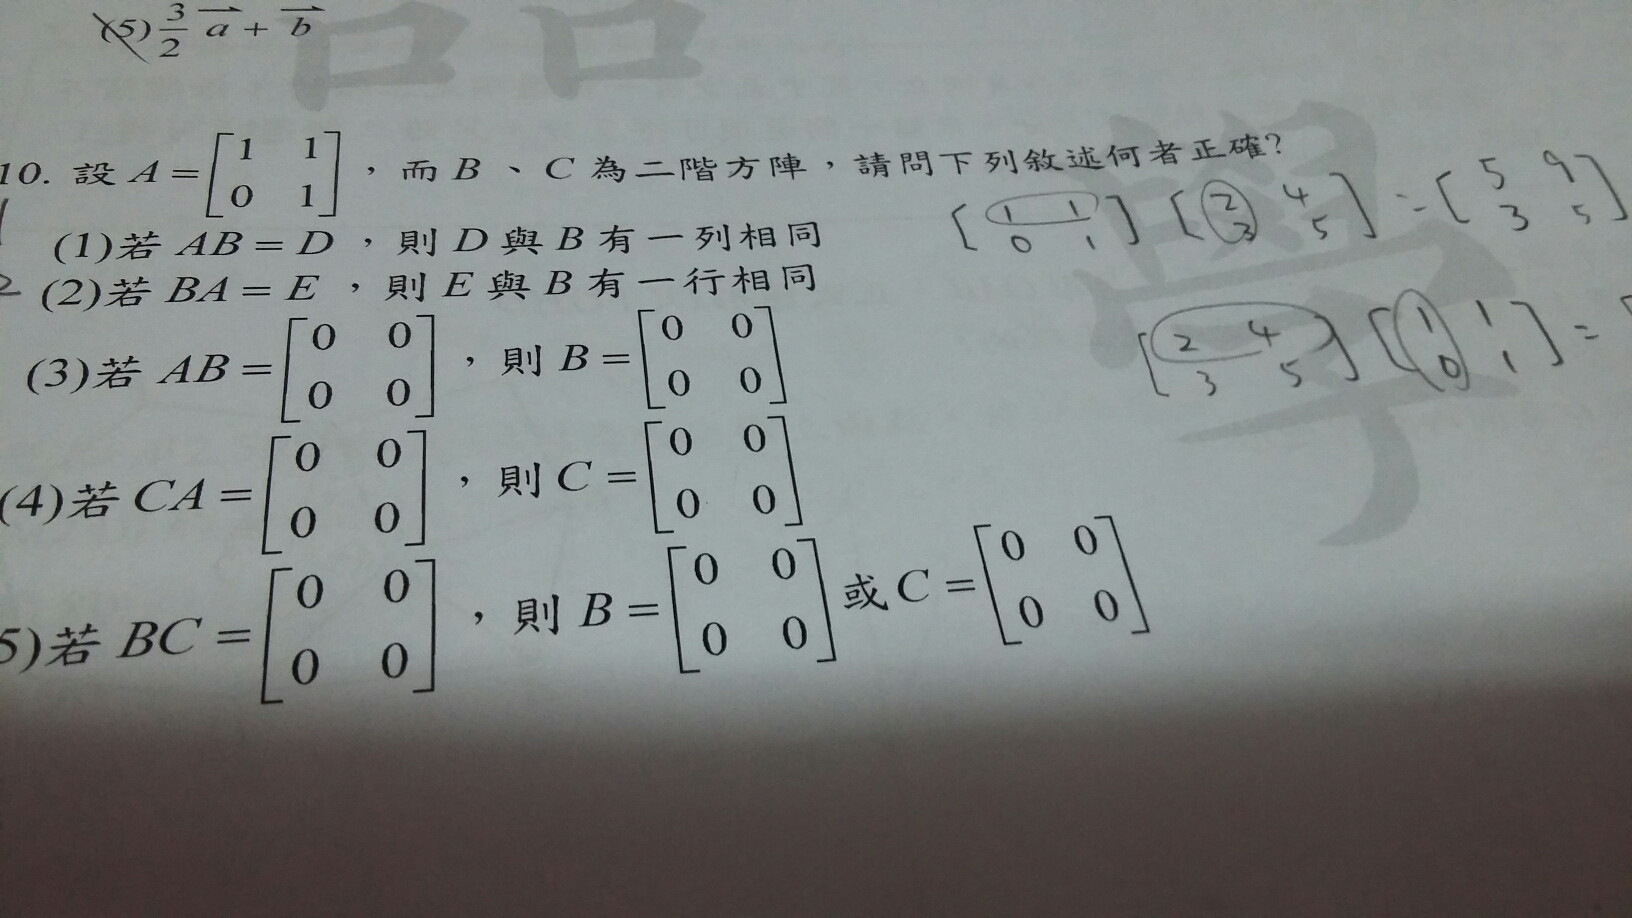 (5) 3/2 a + b
10. 設 A = [1 1; 0 1] , 而 B、C 為二階方陣,請問下列敘述何者正確?
(1)若 AB = D ,則 D 與 B 有一列相同
(2)若 BA = E ,則 E 與 B 有一行相同
(3)若 AB = [0 0; 0 0] ,則 B = [0 0; 0 0]
(4)若 CA = [0 0; 0 0] ,則 C = [0 0; 0 0]
5)若 BC = [0 0; 0 0] ,則 B = [0 0; 0 0] 或 C = [0 0; 0 0]
[1 1; 0 1] [2 4; 3 5] = [5 9; 3 5]
[2 4; 3 5] [1 1; 0 1] =
品
學